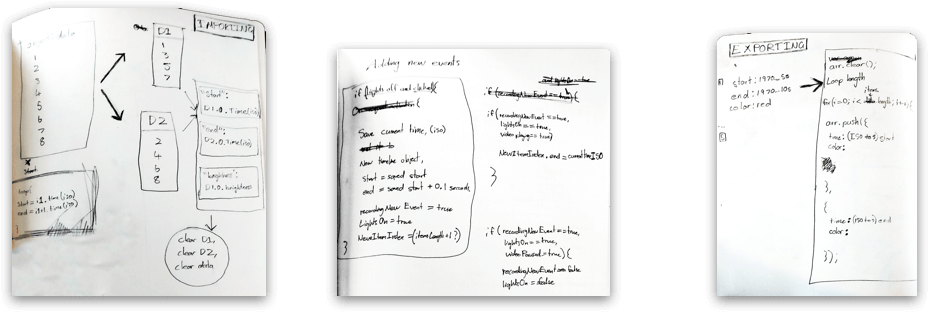 IMPORTING
data
1
2
3
4
5
6
7
8
D1
1
3
5
7
D2
2
4
6
8
"Start":
D1.0.Time(iso)
"end":
D2.0.Time(iso)
D1.0.brightness
start = i.time(iso)
end = i+1.time(iso)
clear D1,
clear D2,
clear data
Adding new events
if (lights off and clicked){
Save current time, (iso)
New timeline object,
start = saved start
end = saved start + 0.1 seconds
recordingNewEvent = true
LightsOn = true
NewItemIndex = (itemslength+1?)
}
if (recordingNewEvent == true){
if (recordingNewEvent == true,
lightsOn == true,
video playing == true)
NewItemIndex.end = currentTimeISO
}
if (recordingNewEvent == true,
lightsOn == true,
videoPaused = true){
recordingNewEvent = false
lightsOn = false
EXPORTING
start: 1970_5s
end: 1970_10s
color: red
arr.clear();
Loop length
items
for(i=0; i< length; i++){
arr.push({
time: (ISO to s) start
color:
},
{
time: (ISO to s) end
color:
});